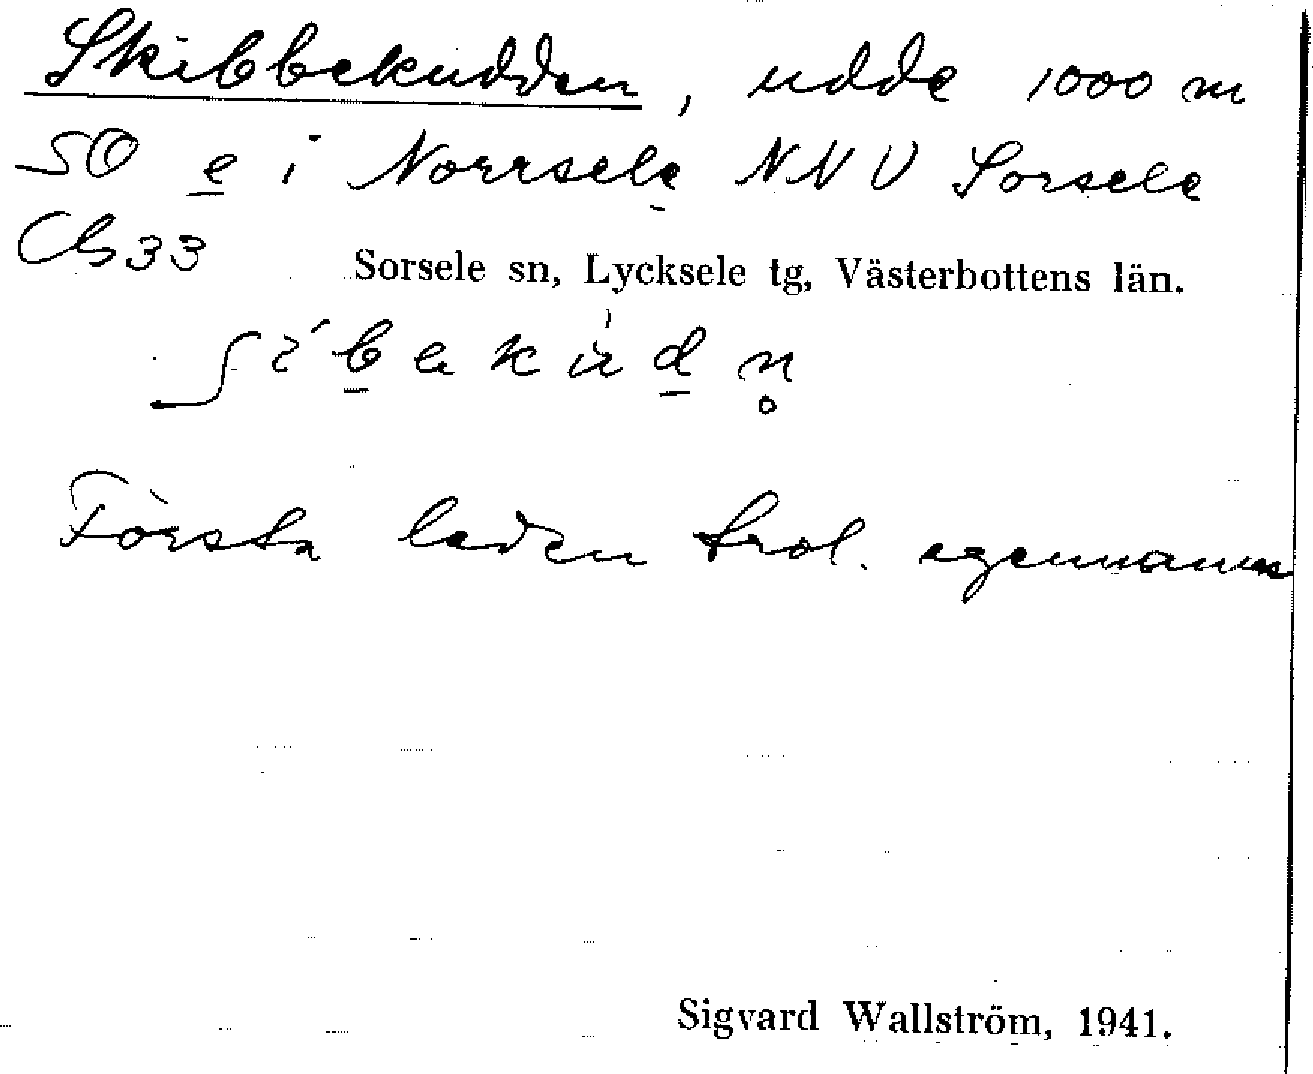 Skibbekudden, udde 1000 m
SO e i Norrsele NNV Sorsele
Cb33 Sorsele sn, Lycksele tg, Västerbottens län.
ʃi´bekùdn̥
Första leden trol. egennamn
Sigvard Wallström, 1941.